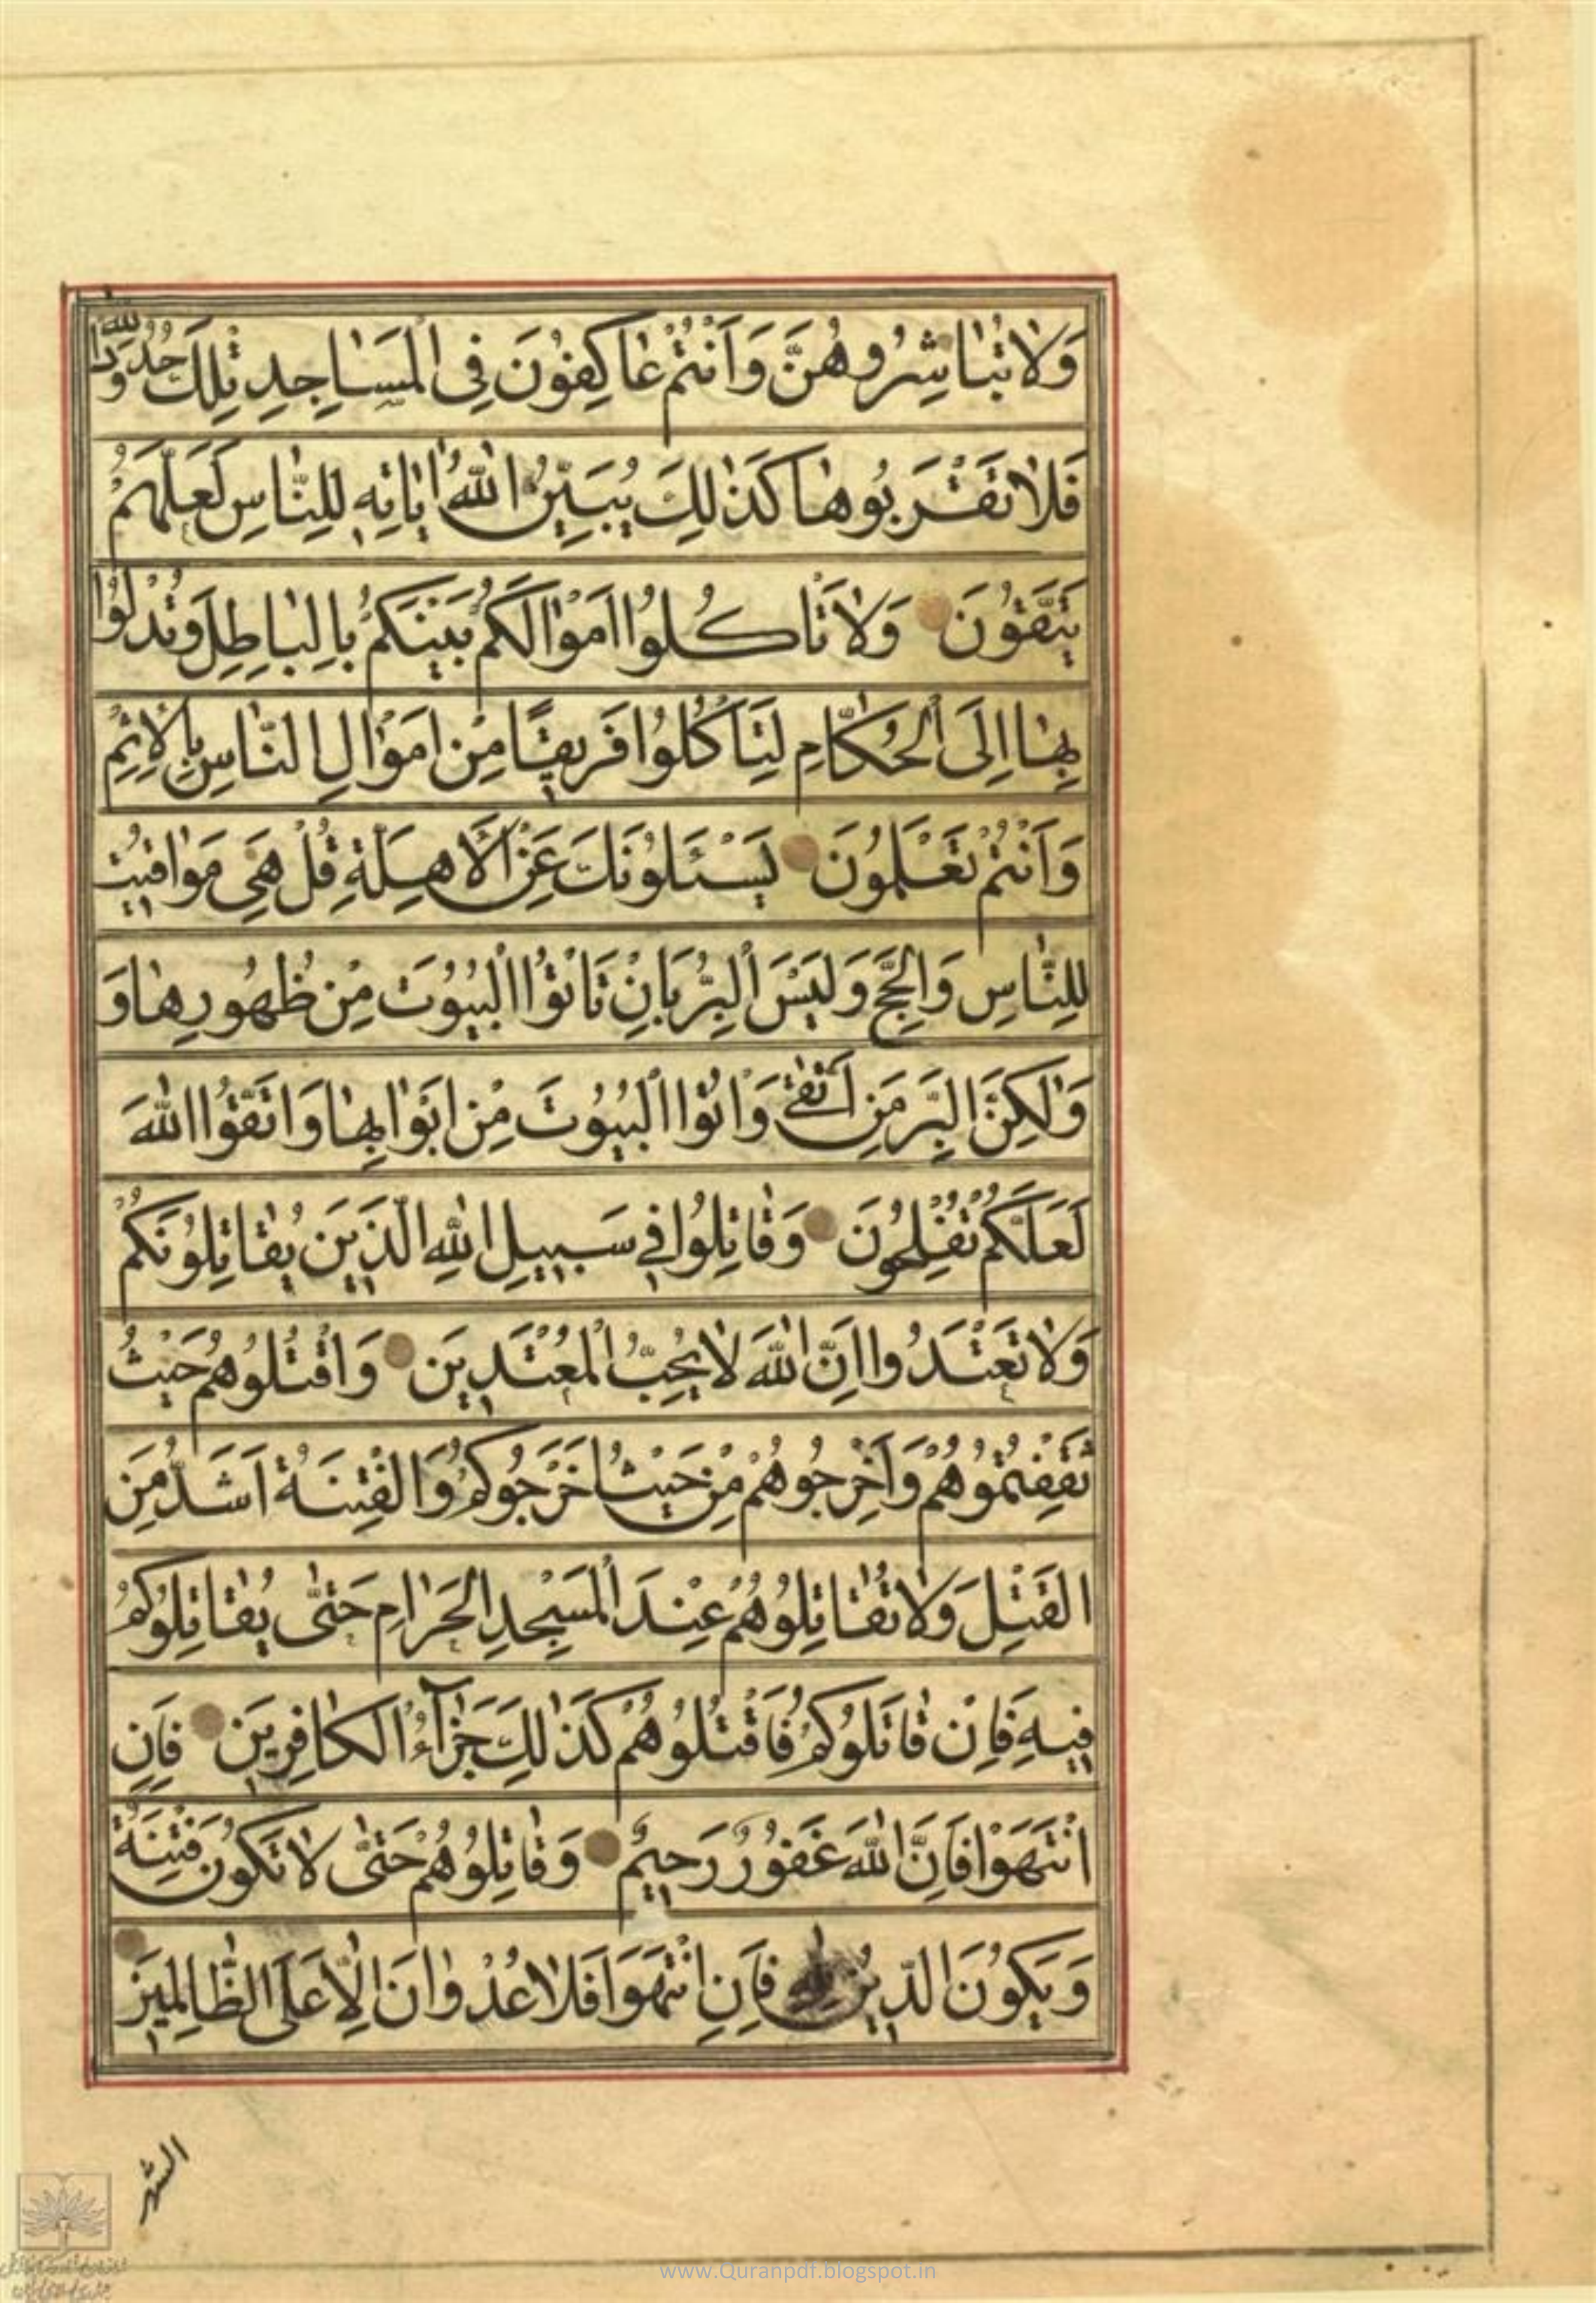 وَلاٰ تُبٰاشِرُوهُنَّ وَاَنْتُمْ عٰاكِفُونَ فِى الْمَسٰاجِدِ تِلْكَ حُدُودُ اللّٰهِ
فَلاٰ تَقْرَبُوهٰا كَذٰلِكَ يُبَيِّنُ اللّٰهُ اٰيٰاتِهِ لِلنّٰاسِ لَعَلَّهُمْ
يَتَّقُونَ وَلاٰ تَاْكُلُوا اَمْوٰالَكُمْ بَيْنَكُمْ بِالْبٰاطِلِ وَتُدْلُوا
بِهٰا اِلَى الْحُكّٰامِ لِتَاْكُلُوا فَرِيقًا مِنْ اَمْوٰالِ النّٰاسِ بِالْاِثْمِ
وَاَنْتُمْ تَعْلَمُونَ يَسْئَلُونَكَ عَنِ الْاَهِلَّةِ قُلْ هِىَ مَوٰاقيتُ
لِلنّٰاسِ وَالْحَجِّ وَلَيْسَ الْبِرُّ بِاَنْ تَاْتُوا الْبُيُوتَ مِنْ ظُهُورِهٰا وَ
وَلٰكِنَّ الْبِرَّ مَنِ اتَّقٰى وَاْتُوا الْبُيُوتَ مِنْ اَبْوٰابِهٰا وَاتَّقُوا اللّٰهَ
لَعَلَّكُمْ تُفْلِحُونَ وَقٰاتِلُوا فِى سَبِيلِ اللّٰهِ الَّذِينَ يُقٰاتِلُونَكُمْ
وَلاٰ تَعْتَدُوا اِنَّ اللّٰهَ لاٰ يُحِبُّ الْمُعْتَدِينَ وَاقْتُلُوهُمْ حَيْثُ
ثَقِفْتُمُوهُمْ وَاَخْرِجُوهُمْ مِنْ حَيْثُ اَخْرَجُوكُمْ وَالْفِتْنَةُ اَشَدُّ مِنَ
الْقَتْلِ وَلاٰ تُقٰاتِلُوهُمْ عِنْدَ الْمَسْجِدِ الْحَرٰامِ حَتّٰى يُقٰاتِلُوكُمْ
فِيهِ فَاِنْ قٰاتَلُوكُمْ فَاقْتُلُوهُمْ كَذٰلِكَ جَزٰآءُ الْكٰافِرِينَ فَاِنِ
انْتَهَوْا فَاِنَّ اللّٰهَ غَفُورٌ رَحِيمٌ وَقٰاتِلُوهُمْ حَتّٰى لاٰ تَكُونَ فِتْنَةٌ
وَيَكُونَ الدِّينُ لِلّٰهِ فَاِنِ انْتَهَوْا فَلاٰ عُدْوٰانَ اِلّٰا عَلَى الظّٰالِمِينَ
الشهر
www.Quranpdf.blogspot.in